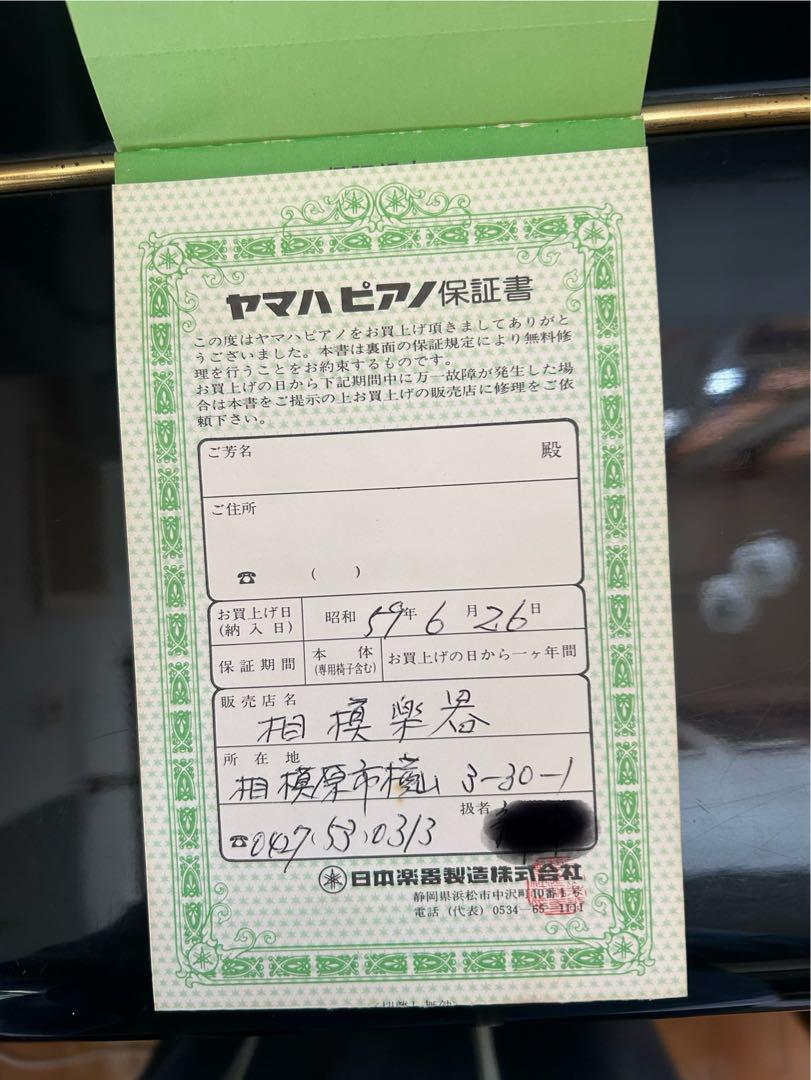 ヤマハピアノ保証書
この度はヤマハピアノをお買上げ頂きましてありがと
うございました。本書は裏面の保証規定により無料修
理を行うことをお約束するものです。
お買上げの日から下記期間中に万一故障が発生した場
合は本書をご提示の上お買上げの販売店に修理をご依
頼下さい。
ご芳名 殿
ご住所
☎ ( )
お買上げ日 (納入日) 昭和 59年 6月 26日
保証期間 本体 (専用椅子含む) お買上げの日から一ヶ年間
販売店名
相模楽器
所在地
相模原市横山 3-30-1
扱者
☎0427-53-0313
日本楽器製造株式会社
静岡県浜松市中沢町10番1号
電話 (代表) 0534-65-1111